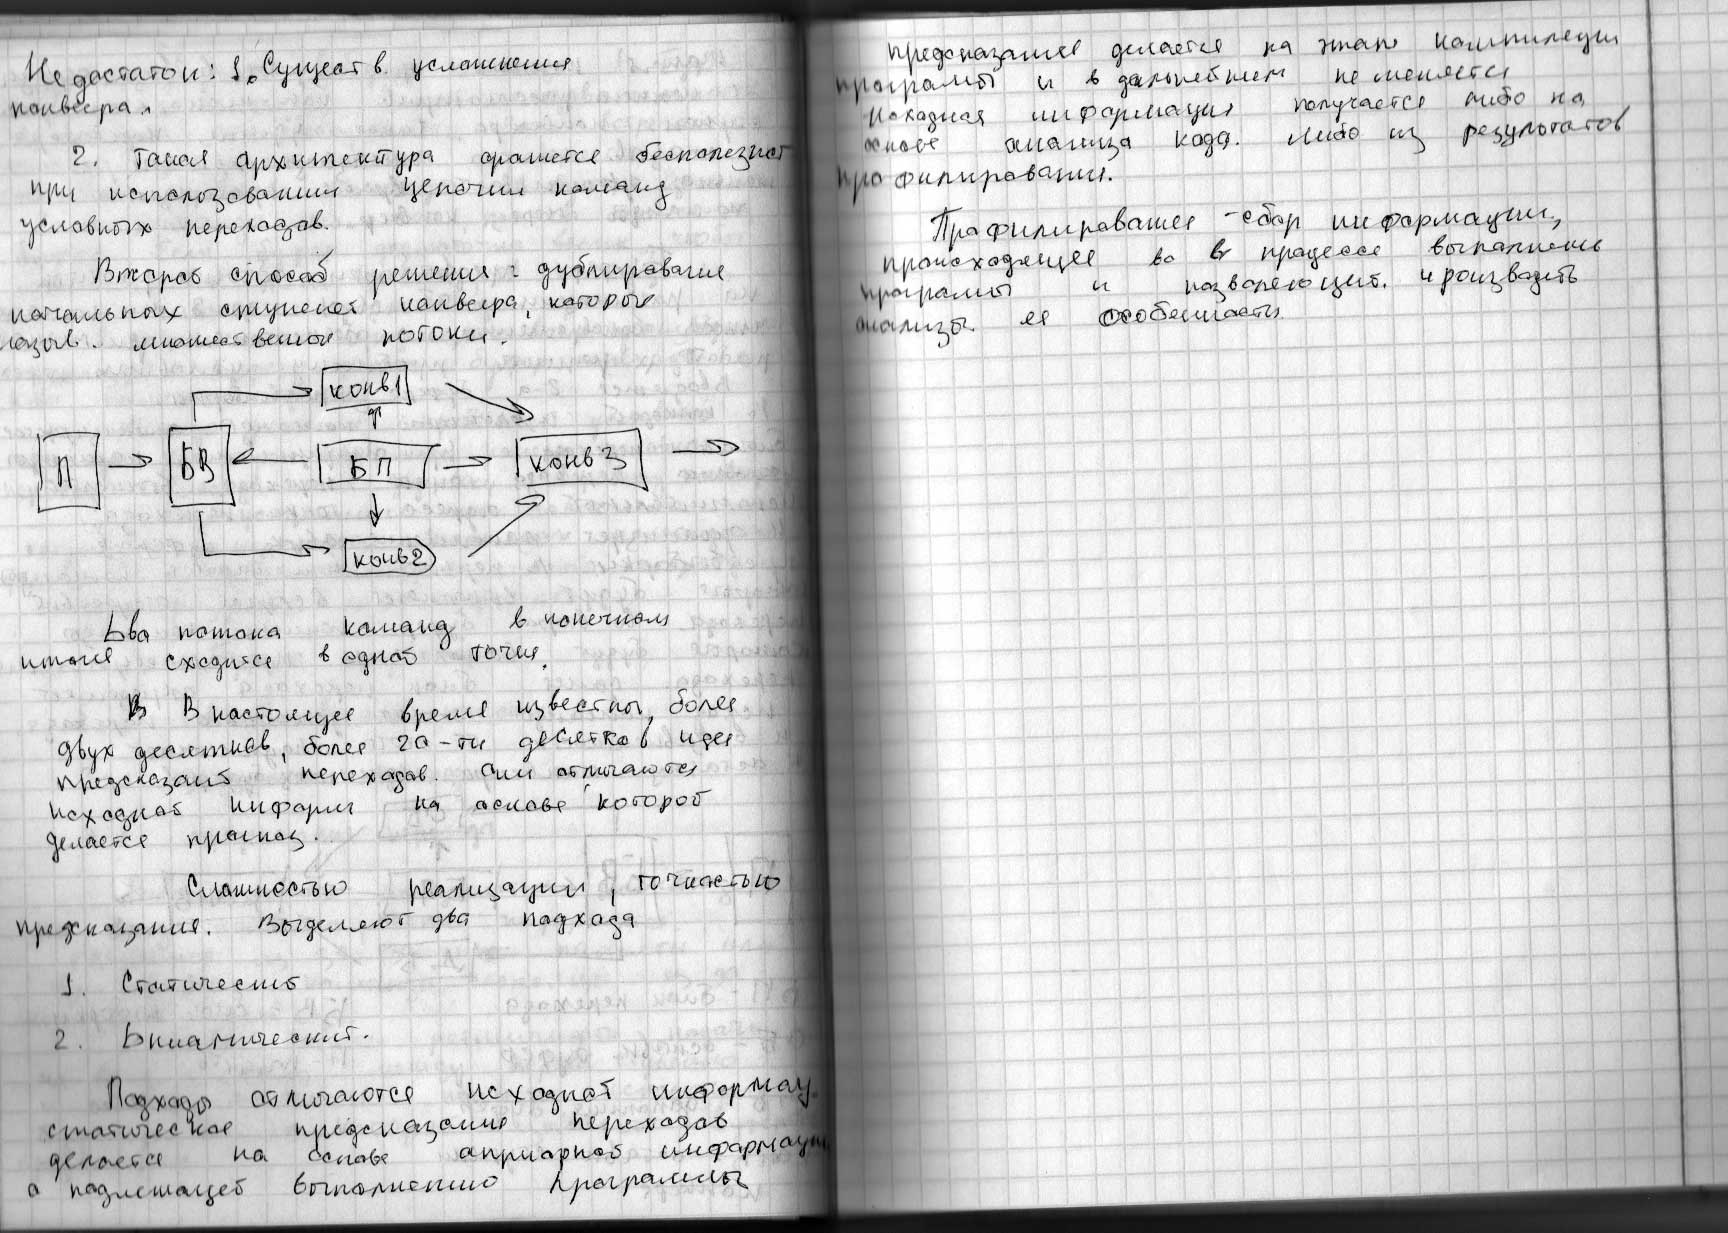 Недостаток: 1. Существ. усложнения
конвеера.
2. Такая архитектура окажется бесполезной
при использовании цепочки команд
условных переходов.
Второй способ решения: дублирование
начальных ступеней конвеера, которые
назыв. множественной потоки.
конв1
П
БВ
БП
конв3
конв2
Два потока команд в конечном
итоге сходится в одной точке.
В В настоящее время известны, более
двух десятков, более 20-ти десятков идей
предсказаний переходов. Они отличаются
исходной информ на основе которой
делается прогноз.
Сложностью реализации, точностью
предсказания. Выделяют два подхода
1. Статический
2. Динамический.
Подходы отличаются исходной информац.
статическое предсказание переходов
делается на основе априорной информации
о подлежащей выполнению программы
предсказание делается на этапе компиляции
программы и в дальнейшем не меняется
Исходная информация получается либо на
основе анализа кода. либо из результатов
профилирования.
Профилирование - сбор информации,
происходящее во в процессе выполнения
программы и позволяющий. производить
анализы ее особенности